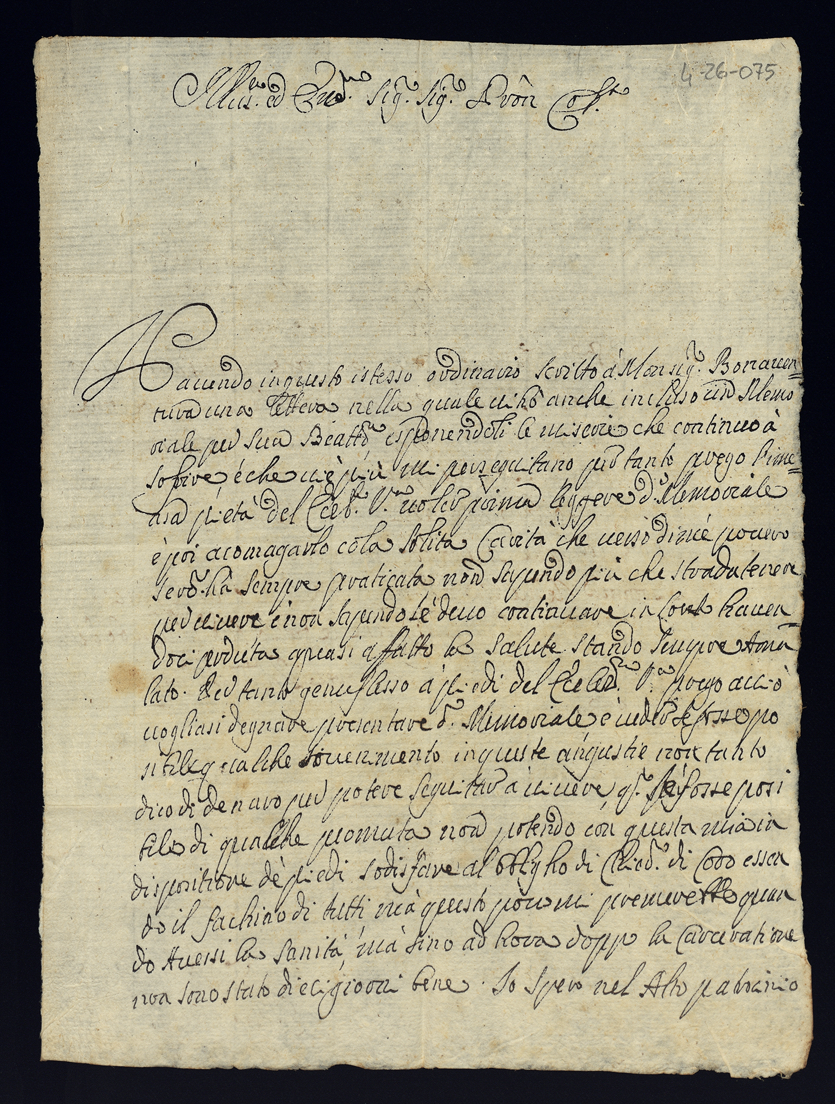 4-26-075
Illus.mo ed Ecc.mo Sig.re Sig.re Pron Col.mo
Hauendo inquesto istesso ordinario scritto á Monsig.re Bonauen=
tura una lettera nella quale ui hó anche incluso un Memo
riale per sua Beattd.ne esponendoli le miserie che continuo à
sofrire é che uie più mi perseguitano per tanto prego l'ime=
nsa pietà del V.ra uoler prima leggere d.o Memoriale
è poi acomagarlo cola solita Carità che uerso dimé pouero
seruo ha sempre praticata non sapendo più che strada tenere
per uiuere è non sapendo sé deuo continuare in Corte hauen
doci perduta quasi affatto la salute stando sempre Ama
lato. Per tanto genuflesso à piedi del V.ra prego acciò
uogliasi degnare presentare d.o Memoriale è ueder se fosse po
sibile qualche souenimento inqueste angustie non tanto
dico di denaro per potere seguitar à uiuere q.to sé fosse posi
bile di qualche promuta non potendo con questa mia in
dispositione dé piedi sodisfare al'obligho di di Coro essen
do il fachino di tutti mà questo pòco mi premerebbe quan
do Auessi la sanità, mà sino ad hora doppo la Carceratione
non sono stato dieci giorni bene. Io spero nel Alto patrocinio